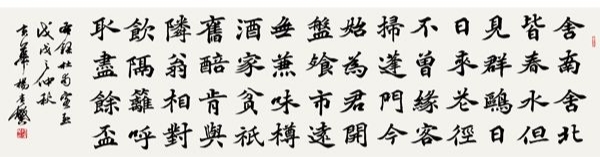 舍南舍北
皆春水但
見群鷗日
日來花徑
不曾緣客
掃蓬門今
始為君開
盤飧市遠
無蒹味樽
酒家貧祇
舊醅肯與
隣翁相對
飲隔籬呼
取盡餘盃
杜甫客至
戊戌之仲秋
楊